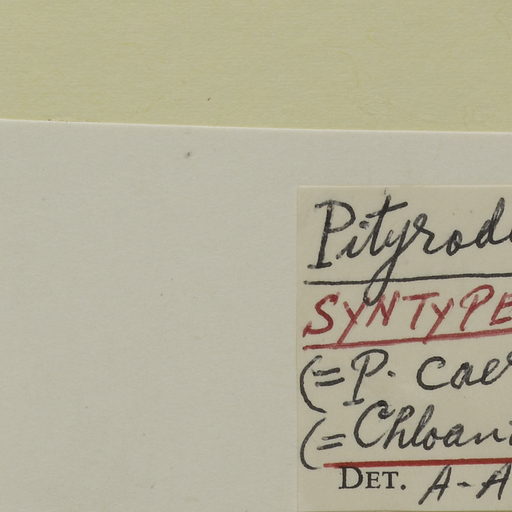 Pityrod
SYNTYPE
(=P. caer
(=Chloan
DET. A-A